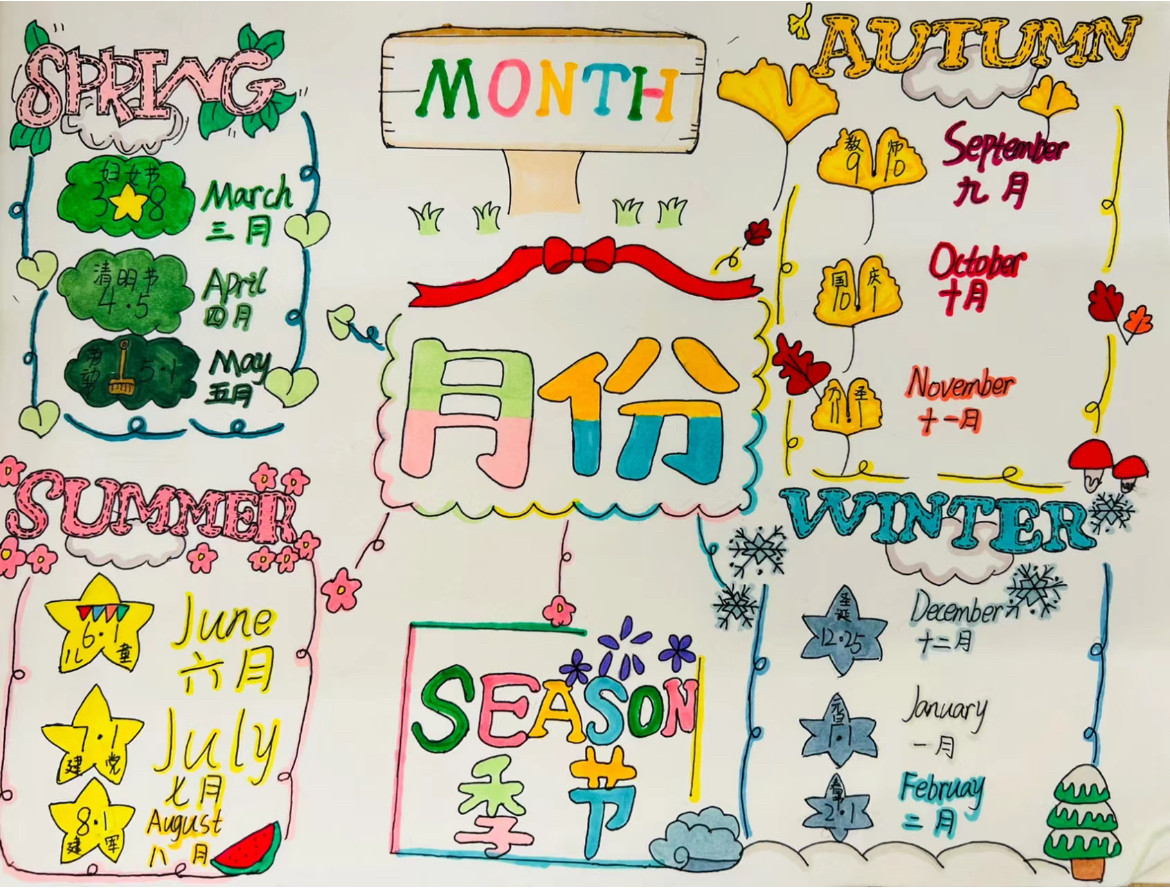 SPRING
妇女节
3 8
March
三月
清明节
4·5
April
四月
劳动
5·1
May
五月
MONTH
月份
AUTUMN
教师
9 10
September
九月
国庆
10 1
October
十月
圣
November
十一月
SUMMER
6·1
儿童
June
六月
7·1
建党
July
七月
8·1
建军
August
八月
SEASON
季节
WINTER
圣诞
12·25
December
十二月
元旦
1·1
January
一月
2·1
Februay
二月